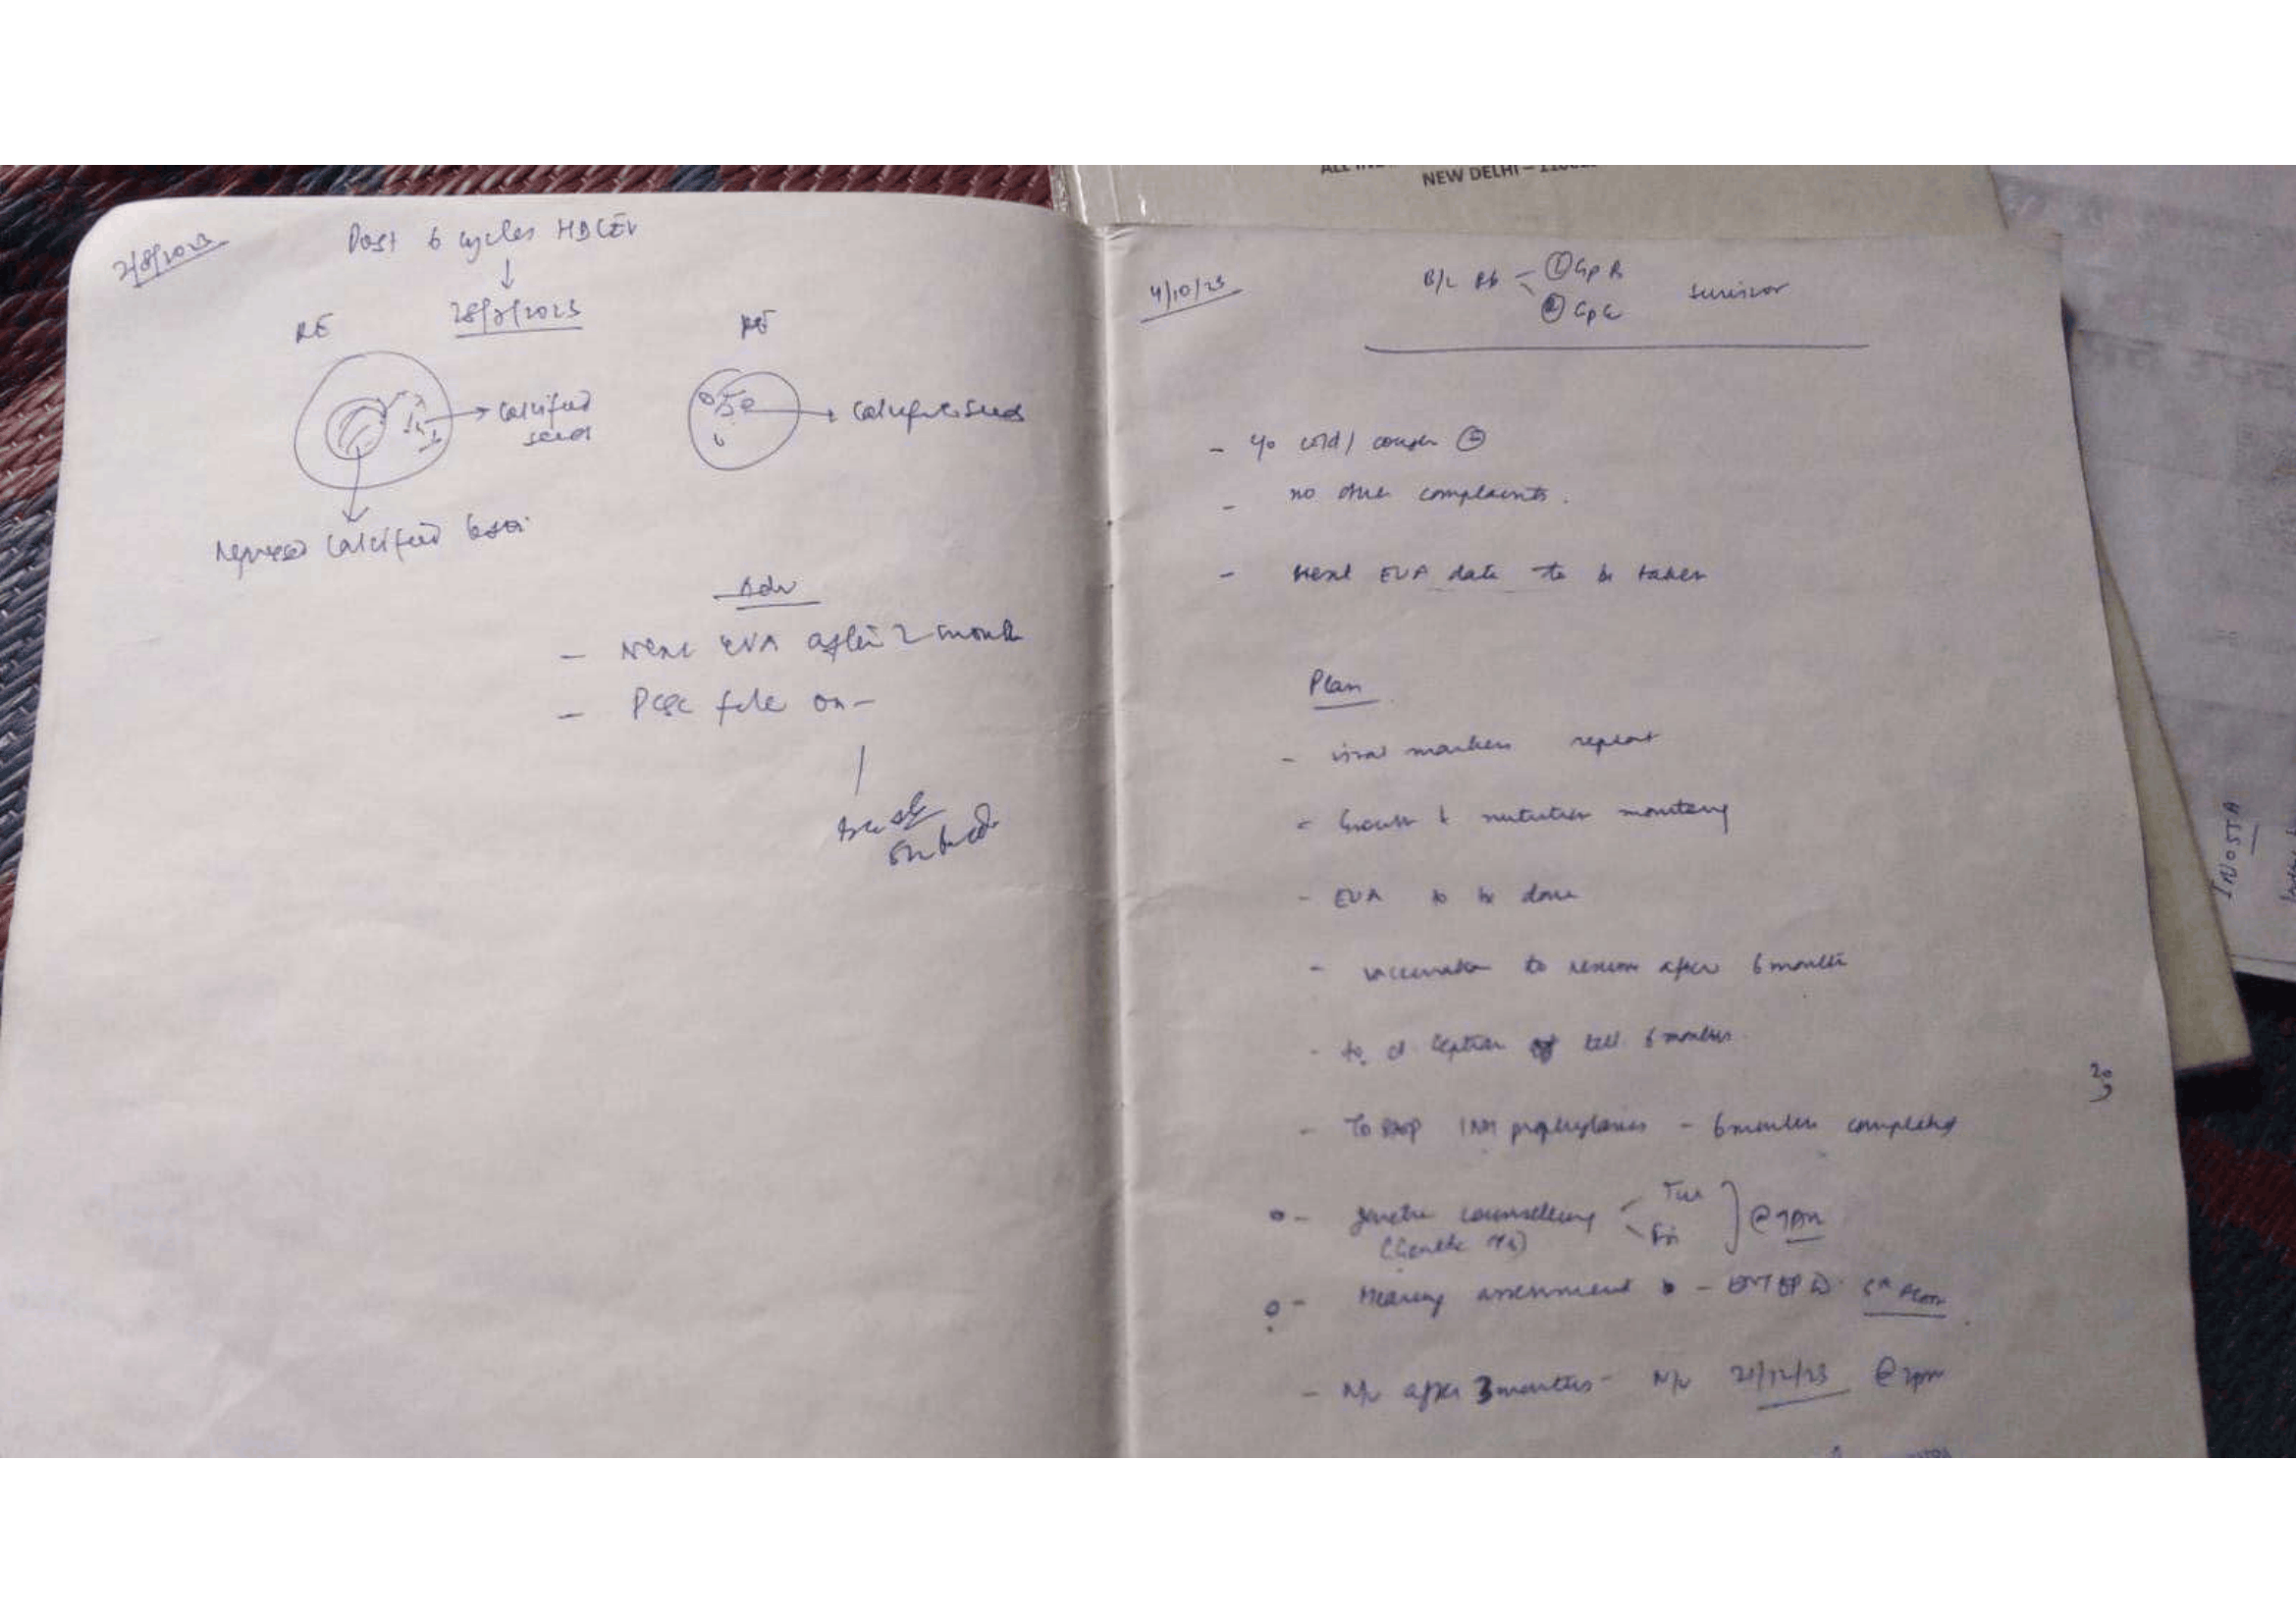 2/8/2023
Post 6 cycles HDCEV
28/7/2023
RE
calcified
seeds
calcific seeds
Regressed calcified
Adv
- Next EUA after 2 month
- file on -
NEW DELHI –
4/10/23
B/L Rb – ① Gp B
② Gp E
survivor
- cold / cough
- no other complaints.
- Next EUA date to be taken
Plan
- viral markers repeat
- Growth & nutrition monitoring
- EUA to be done
- vaccination to resume after 6 months
- to septran till 6 months.
- To stop INH prophylaxis - 6 months completed
- genetic counselling Tue
Fri
@ 9AM
- Hearing assessment - ENT OPD 6th floor
- N/v after 3 months - N/v @ 2pm
20